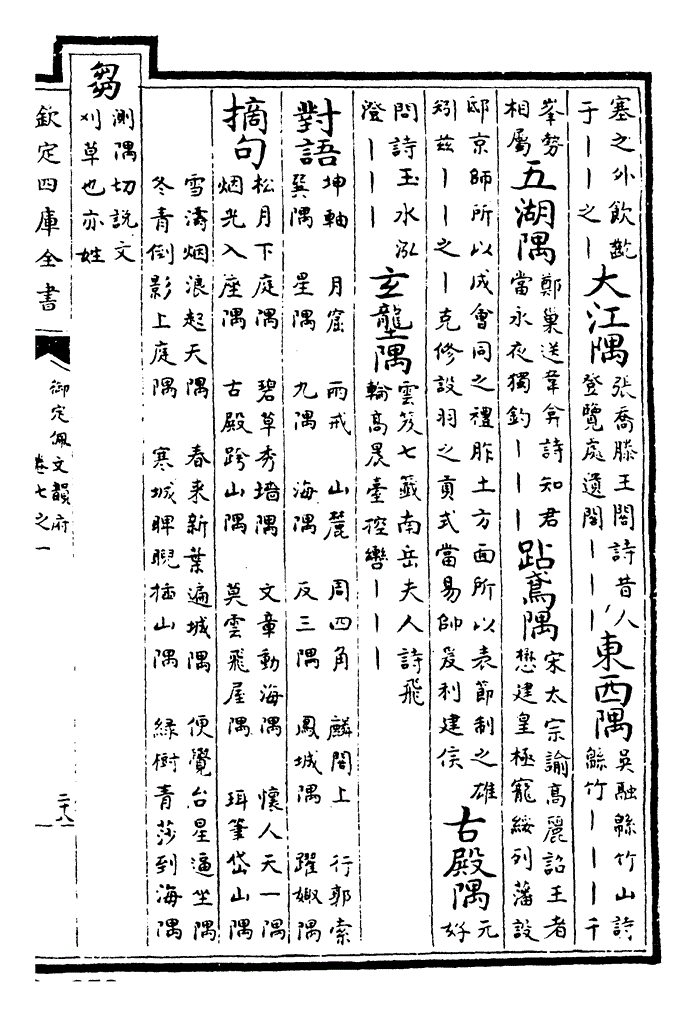 塞之外飲㽅
于丨丨之丨
大江隅
張喬滕王閣詩昔人
登覽處遺閣丨丨丨
東西隅
吳融緜竹山詩
緜竹丨丨丨千
峯勢
相屬
五湖隅
鄭巢送韋弇詩知君
當永夜獨釣丨丨丨
跕鳶隅
宋太宗諭高麗詔王者
懋建皇極寵綏列藩設
邸京師所以成會同之禮胙土方面所以表節制之雄
矧玆丨丨之丨克修設羽之貢式當易帥爰利建侯
古殿隅
元
好
問詩玉水泓
澄丨丨丨
玄壟隅
雲笈七籤南岳夫人詩飛
輪高晨臺控轡丨丨丨
對語
坤軸 月窟 兩戒 山麓 周四角 麟閣上 行郭索
巽隅 星隅 九隅 海隅 反三隅 鳳城隅 躍娵隅
摘句
松月下庭隅 碧草秀墻隅 文章動海隅 懷人天一隅
烟光入座隅 古殿跨山隅 莫雲飛屋隅 珥筆岱山隅
雪濤烟浪起天隅 春来新葉遍城隅 便覺台星逼坐隅
冬青倒影上庭隅 寒城睥睨插山隅 緑樹青莎到海隅
芻
測隅切説文
刈草也亦姓
欽定四庫全書
御定佩文韻府
卷七之一
二十八